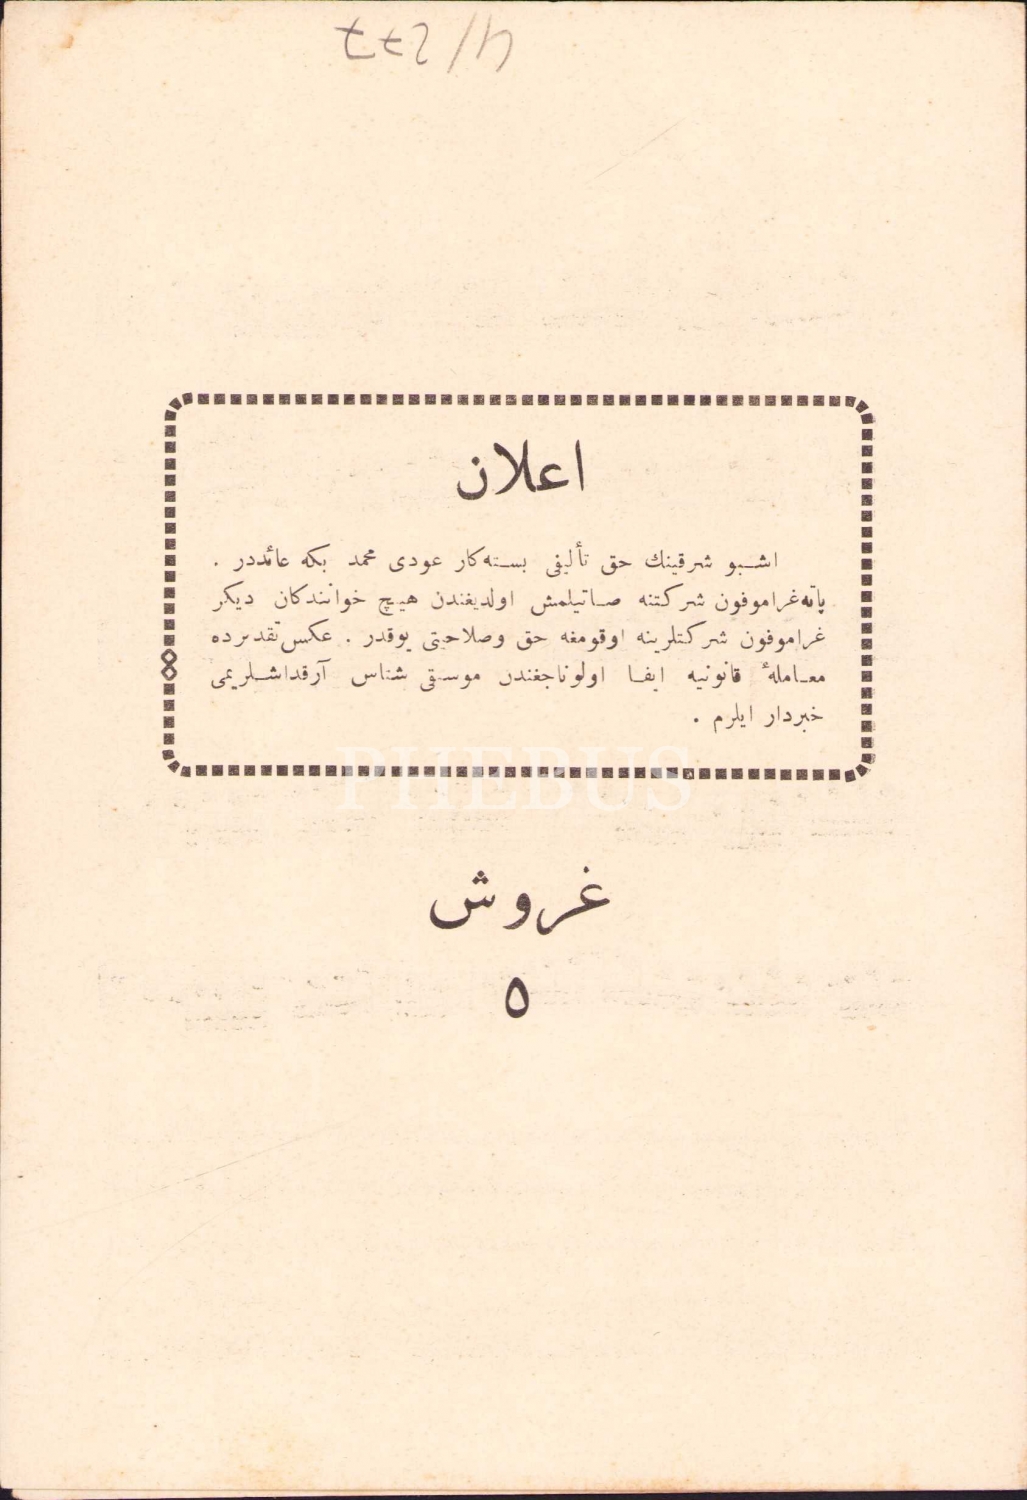 4/277
اعلان
اشبو شرقینك حق تألیفی بسته‌کار عودی محمد بكه عائددر .
پاته‌غراموفون شركتنه صاتیلمش اولدیغندن هیچ خوانندکان دیكر
غراموفون شركتلرینه اوقومغه حق وصلاحیتی یوقدر . عكس تقدیرده
معاملهٔ قانونیه ایفا اولوناجغندن موسقی شناس آرقداشلریمی
خبردار ایلرم .
PHEBUS
غروش
٥